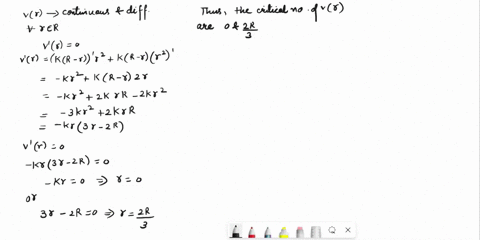 v(r) → continuous & diff
∀ r∈R
v'(r) = 0
v'(r) = (K(R-r))' r² + K(R-r)(r²)'
= -Kr² + K(R-r)2r
= -Kr² + 2KrR - 2Kr²
= -3Kr² + 2KrR
= -Kr(3r-2R)
v'(r) = 0
-Kr(3r-2R) = 0
-Kr = 0 ⇒ r = 0
or
3r - 2R = 0 ⇒ r = 2R/3
Thus, the critical no. of v(r)
are 0 & 2R/3